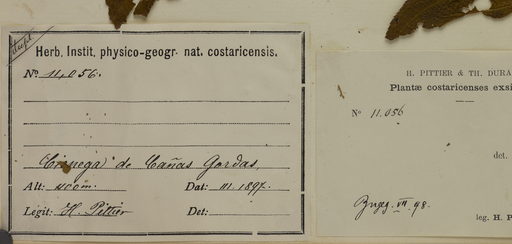 dupl.
Herb. Instit. physico-geogr. nat. costaricensis.
No 11.056.
Cienega de Cañas Gordas,
Alt: 1100m. Dat: III. 1897.
Legit: H. Pittier Det:
H. PITTIER & TH. DURA
Plantæ costaricenses exsi
No 11.056
det.
VII. 98.
leg. H. P